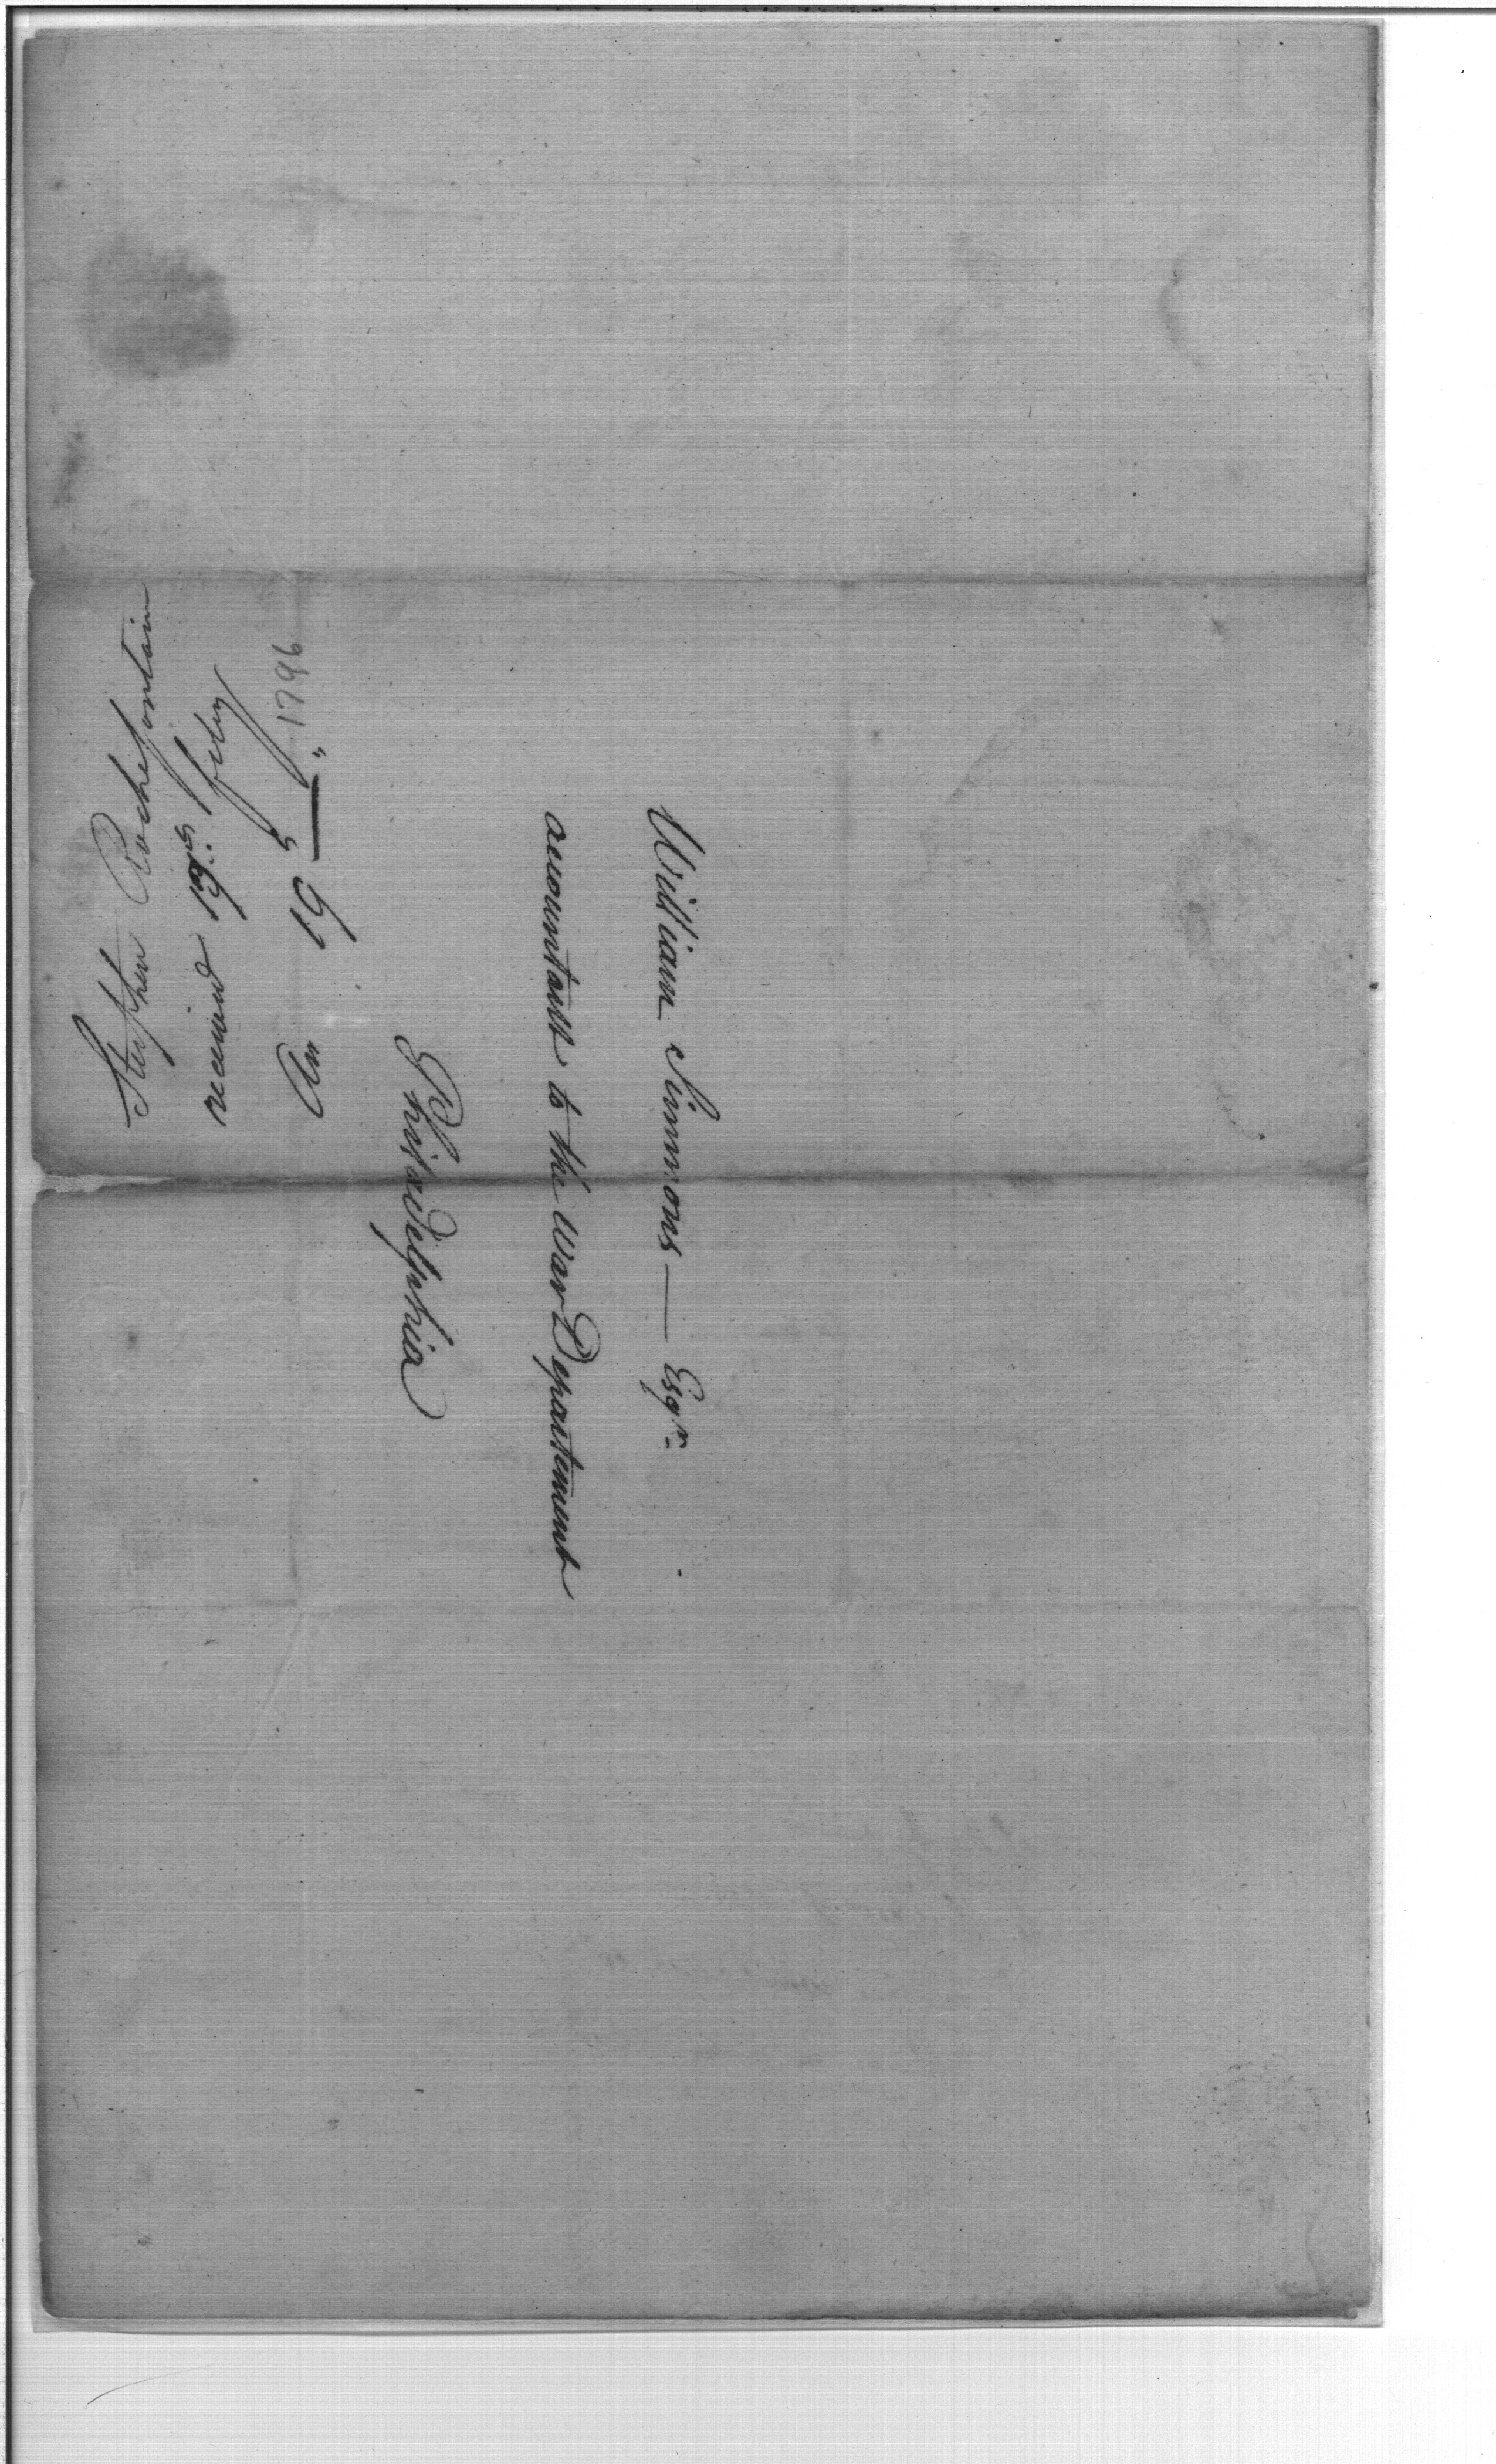 William Simmons — Esqr.
accountant to the war Departement
Philadelphia
Stephen Rochefontain
received 19th feby
19 " 1796